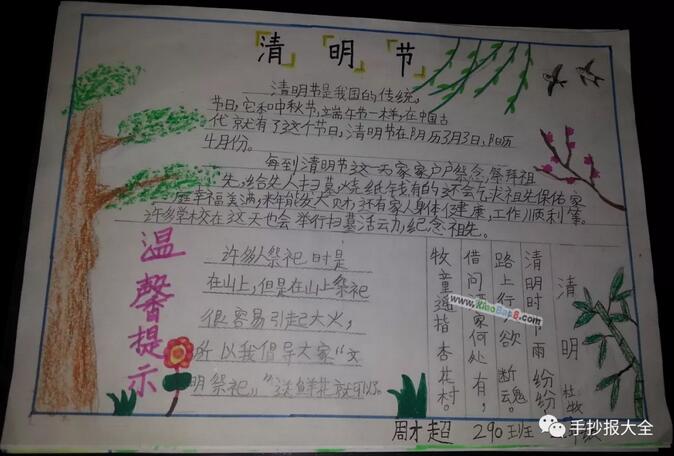 清明节
清明节是我国的传统
节日,它和中秋节,端午节一样,在中国古
代就有了这个节日,清明节在阴历3月3日,阳历
4月份。
每到清明节这一天家家户户祭念,祭拜祖
先,给先人扫墓,烧纸钱有的还会乞求祖先保佑家
庭幸福美满,来年能发大财,还有家人身体健康,工作顺利等。
许多学校在这天也会举行扫墓活动,纪念祖先。
温馨提示
许多人祭祀时是
在山上,但是在山上祭祀
很容易引起大火,
所以我倡导大家“文
明祭祀。”送鲜花就可以。
清明
杜牧
清明时 雨纷纷
路上行 欲断魂。
借问 家何处有,
牧童遥指杏花村。
www.XiaoBao8.com
周才超 290班
手抄报大全